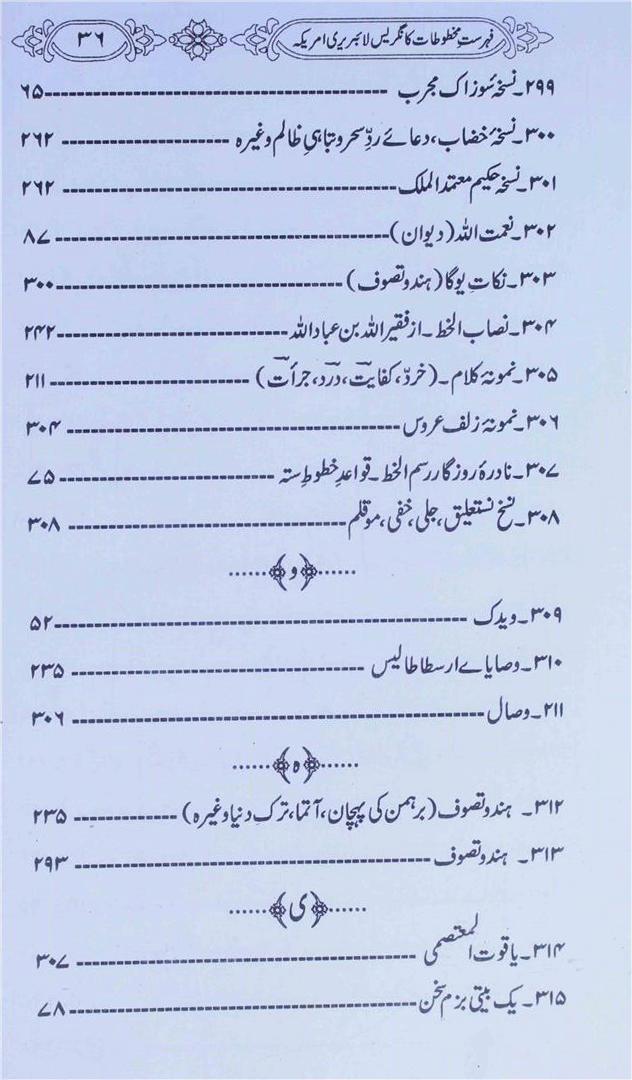 فہرستِ مخطوطات کانگریس لائبریری امریکہ ۳۶
۲۹۹۔ نسخۂ سوزاک مجرب ---------- ۶۵
۳۰۰۔ نسخۂ خضاب، دعائے ردِّ سحر و تباہیِ ظالم وغیرہ ---------- ۲۶۲
۳۰۱۔ نسخہ حکیم معتمد الملک ---------- ۲۶۲
۳۰۲۔ نعمت اللہ (دیوان) ---------- ۸۷
۳۰۳۔ نکاتِ یوگا (ہندو تصوف) ---------- ۳۰۰
۳۰۴۔ نصاب الخط۔ از فقیر اللہ بن عباد اللہ ---------- ۲۴۲
۳۰۵۔ نمونۂ کلام۔ (خردؔ، کفایتؔ، دردؔ، جرأتؔ) ---------- ۲۱۱
۳۰۶۔ نمونۂ زلف عروس ---------- ۳۰۴
۳۰۷۔ نادرۂ روزگار رسم الخط۔ قواعدِ خطوطِ ستہ ---------- ۷۵
۳۰۸۔ نسخ نستعلیق، جلی، خفی، موقلم ---------- ۳۰۸
……﴿و﴾……
۳۰۹۔ ویدک ---------- ۵۲
۳۱۰۔ وصایاے ارسطاطالیس ---------- ۲۳۵
۲۱۱۔ وصال ---------- ۳۰۶
……﴿ہ﴾……
۳۱۲۔ ہندو تصوف (برہمن کی پہچان، آتما، ترکِ دنیا وغیرہ) ---------- ۲۳۵
۳۱۳۔ ہندو تصوف ---------- ۲۹۳
……﴿ی﴾……
۳۱۴۔ یاقوت المعتصمی ---------- ۳۰۷
۳۱۵۔ یک بیتی بزم سخن ---------- ۷۸